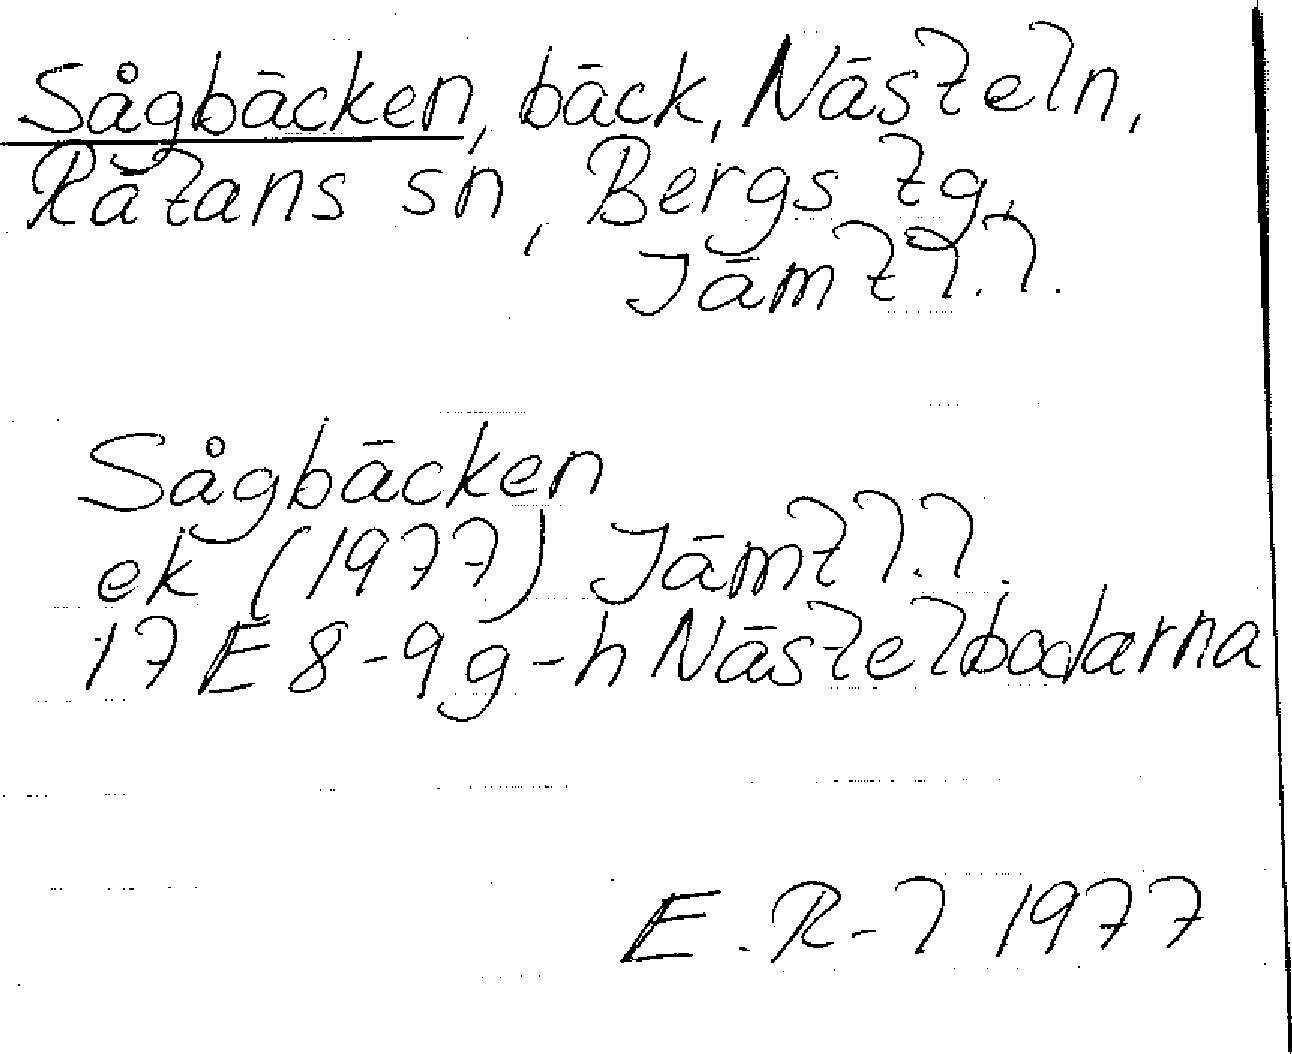 Sågbäcken, bäck, Nästeln,
Rätans sn, Bergs tg,
Jämtl.l.
Sågbäcken
ek (1977) Jämtl.l.
17 E 8-9 g-h Nästelbodarna
E. R-l 1977